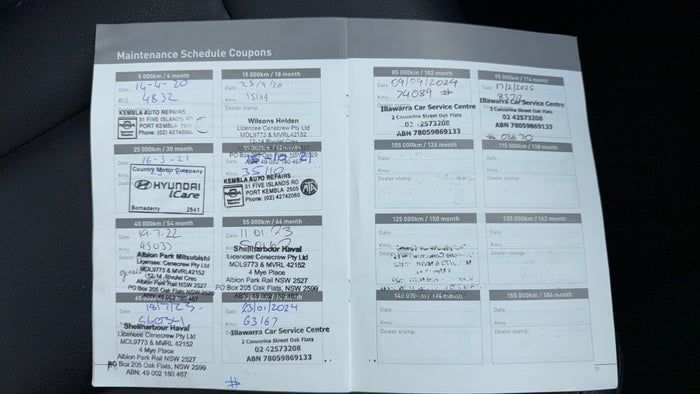 Maintenance Schedule Coupons
5 000km / 6 month
Date: 14-4-20
4832
KEMBLA AUTO REPAIRS
31 FIVE ISLANDS RD
PORT KEMBLA 2505
Phone: (02) 42742060
15 000km / 18 month
Date:
Kms: 15104
Wilsons Holden
Licensee Cenecrew Pty Ltd
MDL9773 & MVRL42152
PO Box
ABN 49 002 180 467
25 000km / 30 month
Date: 16-3-21
Country Motor Company
HYUNDAI
iCare
Bomaderry 2541
35110
KEMBLA AUTO REPAIRS
31 FIVE ISLANDS RD
PORT KEMBLA 2505
Phone: (02) 42742060
45 000km / 54 month
Date: 19.7.22
Kms: 45033
Dealer
Albion Park Mitsubishi
Licensee: Cenecrew Pty Ltd
MDL9773 & MVRL 42152
Albion Park Rail NSW 2527
PO Box 205 Oak Flats, NSW 2599
55 000km / 66 month
Date: 11.01.23
Kms:
Shellharbour Haval
Licensee Cenecrew Pty Ltd
MDL9773 & MVRL 42152
4 Mye Place
Albion Park Rail NSW 2527
PO Box 205 Oak Flats, NSW 2599
Date:
Shellharbour Haval
Licensee Cenecrew Pty Ltd
MDL9773 & MVRL 42152
4 Mye Place
Albion Park Rail NSW 2527
PO Box 205 Oak Flats, NSW 2599
ABN: 49 002 180 467
Date: 23/01/2024
Kms: 63167
Illawarra Car Service Centre
2 Casuarina Street Oak Flats
02 42573208
ABN 78059869133
#
85 000km / 102 month
Date: 09/09/2024
Kms: 74089 #
Illawarra Car Service Centre
2 Casuarina Street Oak Flats
02 42573208
ABN 78059869133
95 000km / 114 month
Date: 17/2/2025
Illawarra Car Service Centre
2 Casuarina Street Oak Flats
02 42573208
ABN 78059869133
# 03670
105 000km / 126 month
Date:
Kms:
Dealer stamp:
115 000km / 138 month
Date:
Kms:
Dealer stamp:
125 000km / 150 month
Date:
Kms:
135 000km / 162 month
Date:
Kms:
Dealer stamp:
145 000km / 174 month
Date:
Kms:
Dealer stamp:
155 000km / 186 month
Date:
Kms:
Dealer stamp: